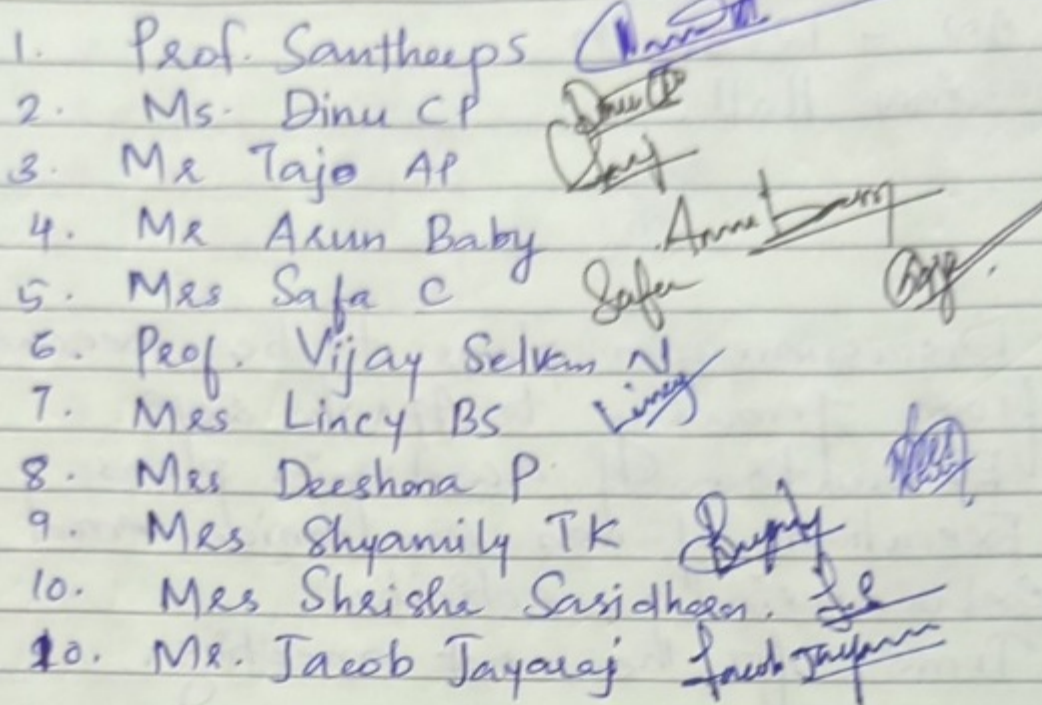 1. Prof. Santheeps
2. Ms. Dinu CP
3. Mr Tajo AP
4. Mr Arun Baby
5. Mrs Safa C Safa
6. Prof. Vijay Selvan N
7. Mrs Lincy BS Lincy
8. Mrs Deeshona P
9. Mrs Shyamily TK
10. Mrs Shrisha Sasidharan.
10. Mr. Jacob Jayaraj Jacob Jayaraj